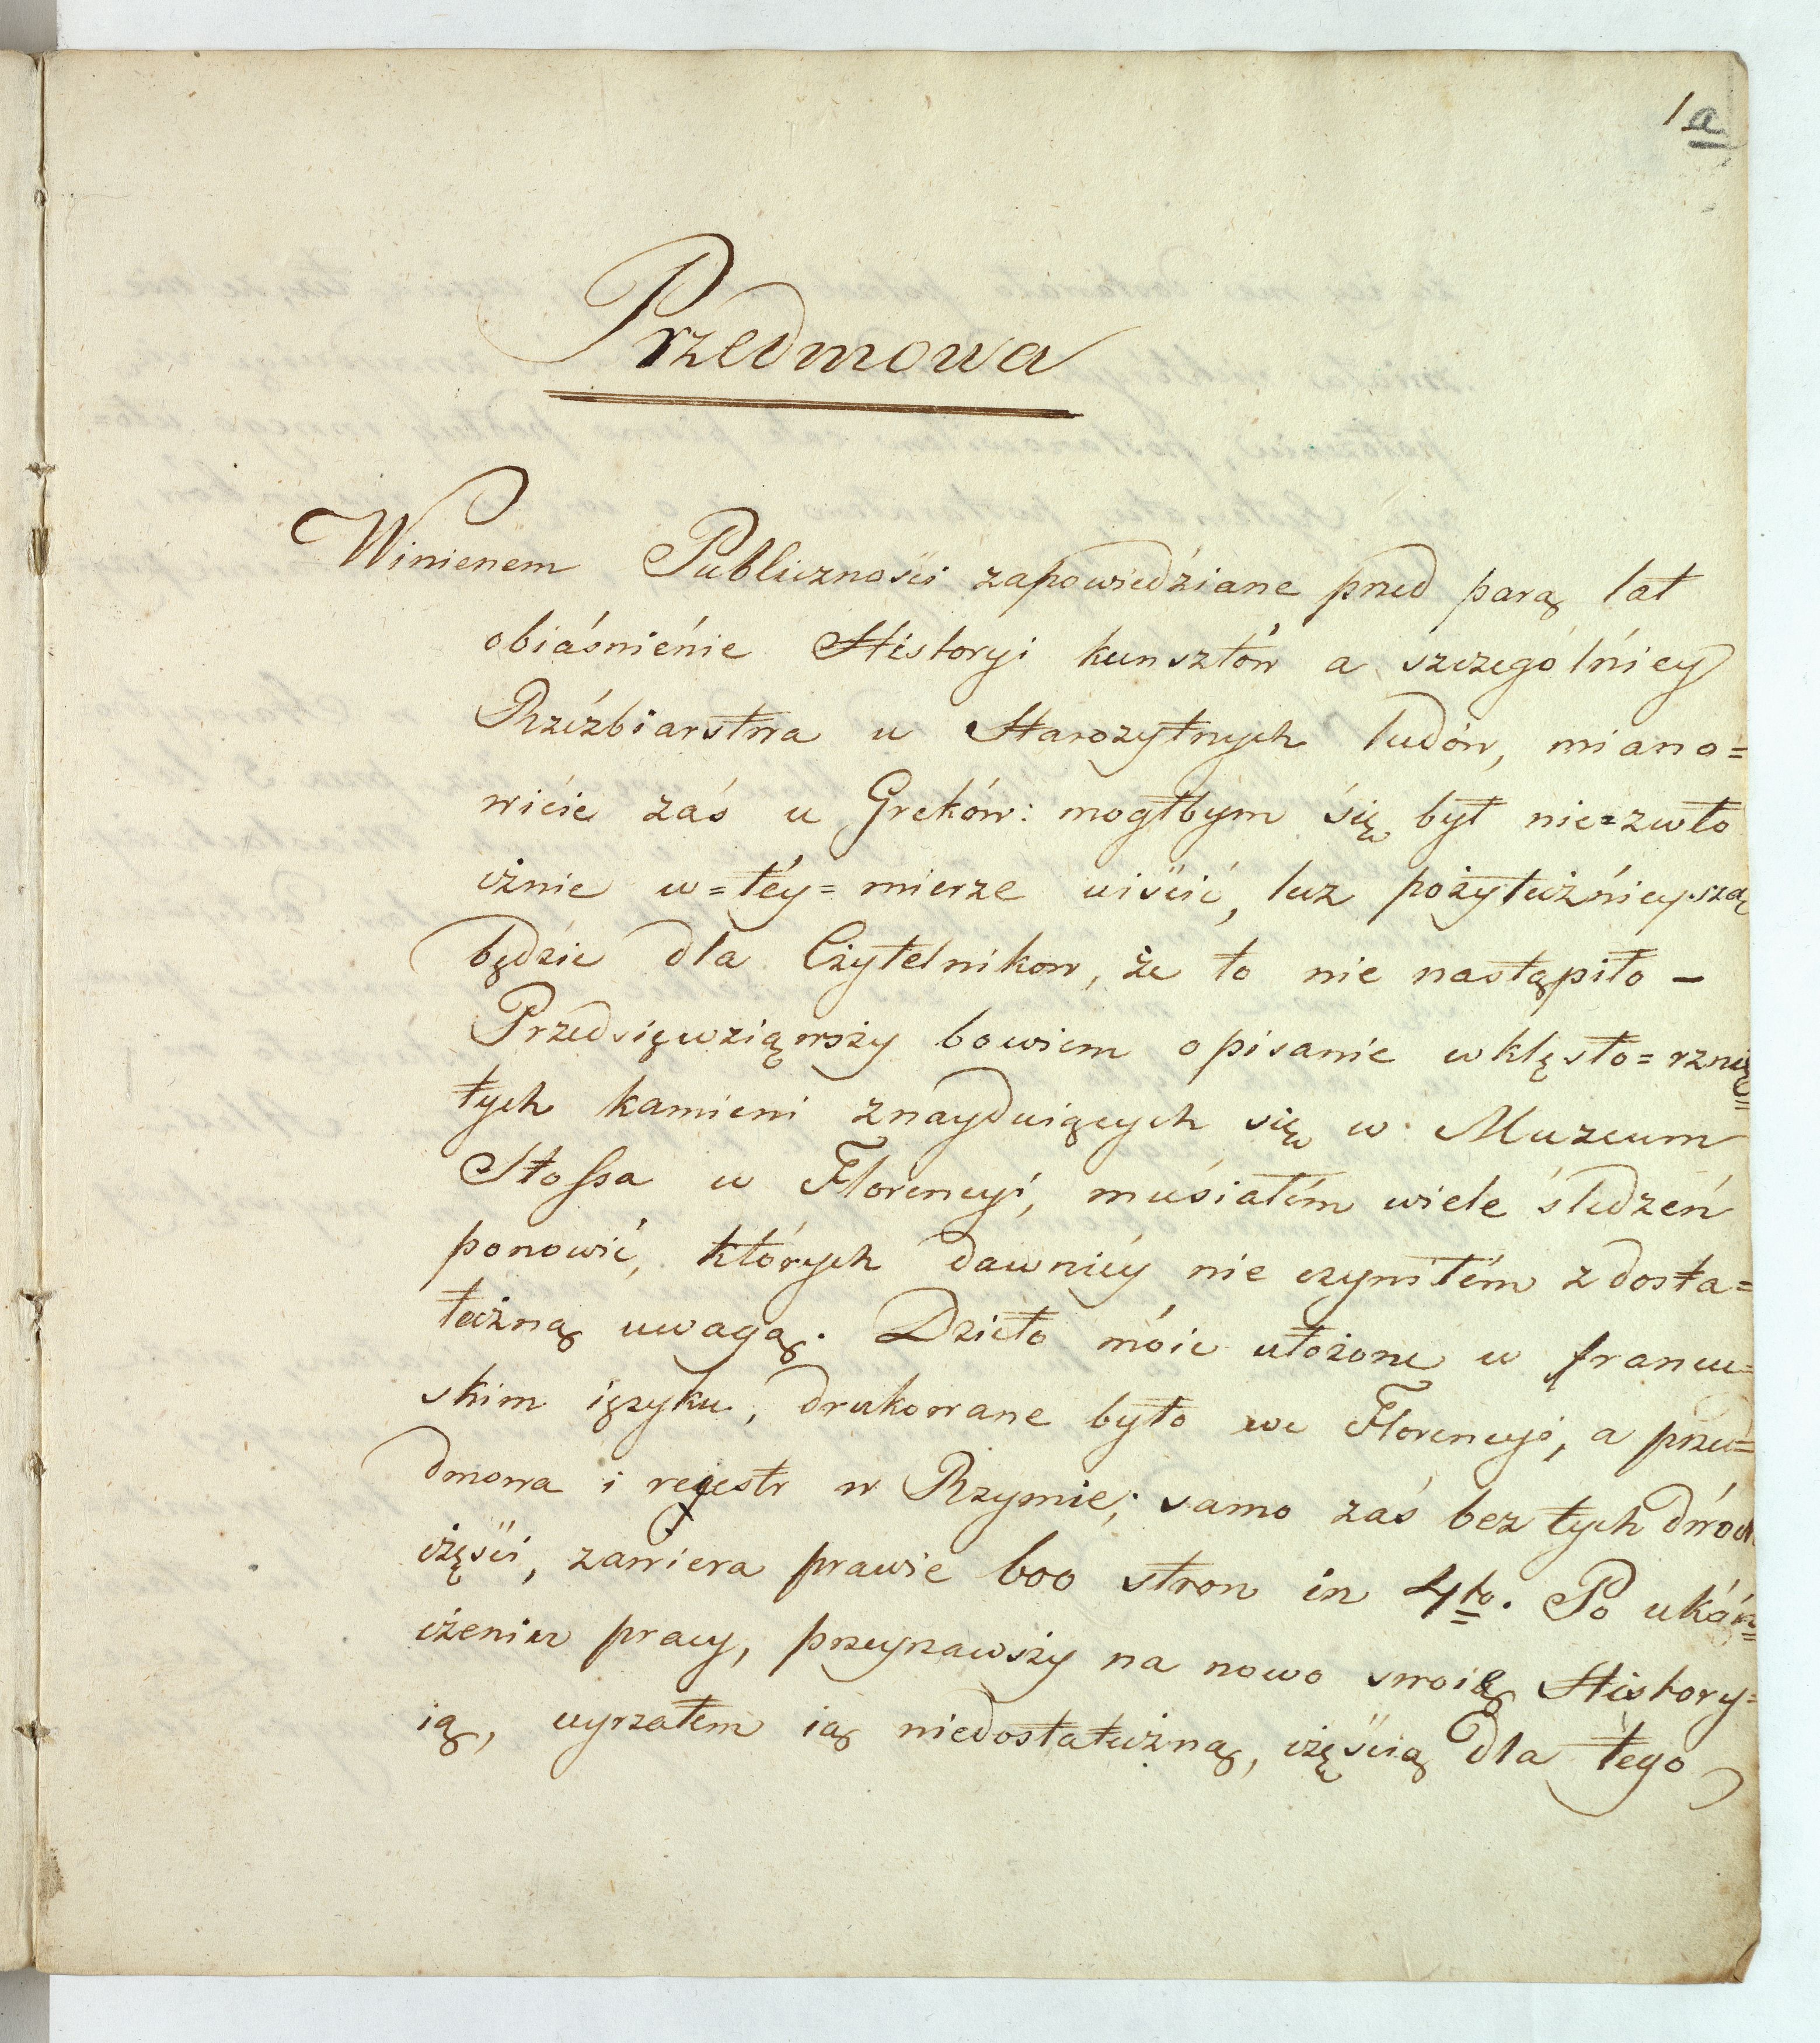 1a
Przedmowa
Winienem Publicznosći zapowiedźiane przed parą lat
obiáśnieńie Historyi kunsztów a szczególńiey
Rzéźbiarstwa u Starożytnych ludów, miano=
wićie zaś u Greków: mogłbym śię był nie=zwło
cżnie w=téy=mierze uiśćić, lecz pożytecżńieyszą
będźie dla Cżytelnikow, że to nie nastąpiło –
Przedsięwziąwszy bowiem opisanie wklęsło=rznię=
tych kamieni znayduiących się w Muzeum
Stoſsa w Florencyi, muśiałém wiele śledzeń
ponowić, których dawniéy nie czyniłém z dosta=
tecżną uwagą. Dzieło móie ułożone w francu=
skim ięzyku, drukowane było we Florencyi, a prze=
dmowa i rejestr w Rzymie; samo zaś bez tych dwóch
cżęśći, zawiera prawie 600 stron in 4to. Po ukáń=
cżeniu pracy, przeyrzawszy na nowo swoię History=
ią, uyrzałem ią niedostatecżną, cżęśćią dla tego